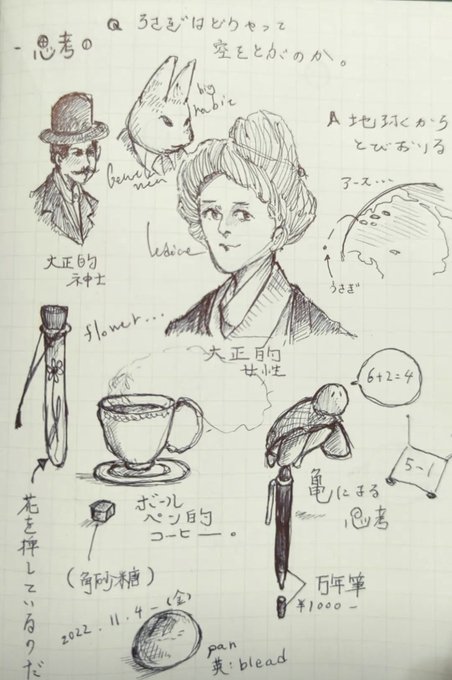 - 思考の
Q うさぎはどうやって
空をとぶのか。
big
rabit
A 地球から
とびおりる
アース…
うさぎ
大正的
神士
Ledice
大正的
女性
flower...
6+2=4
5~1
亀による
思考
万年筆
¥1000-
ボール
ペン的
コーヒー。
(角砂糖)
花を挿しているのだ
2022.11.4-(金)
pan
英:blead